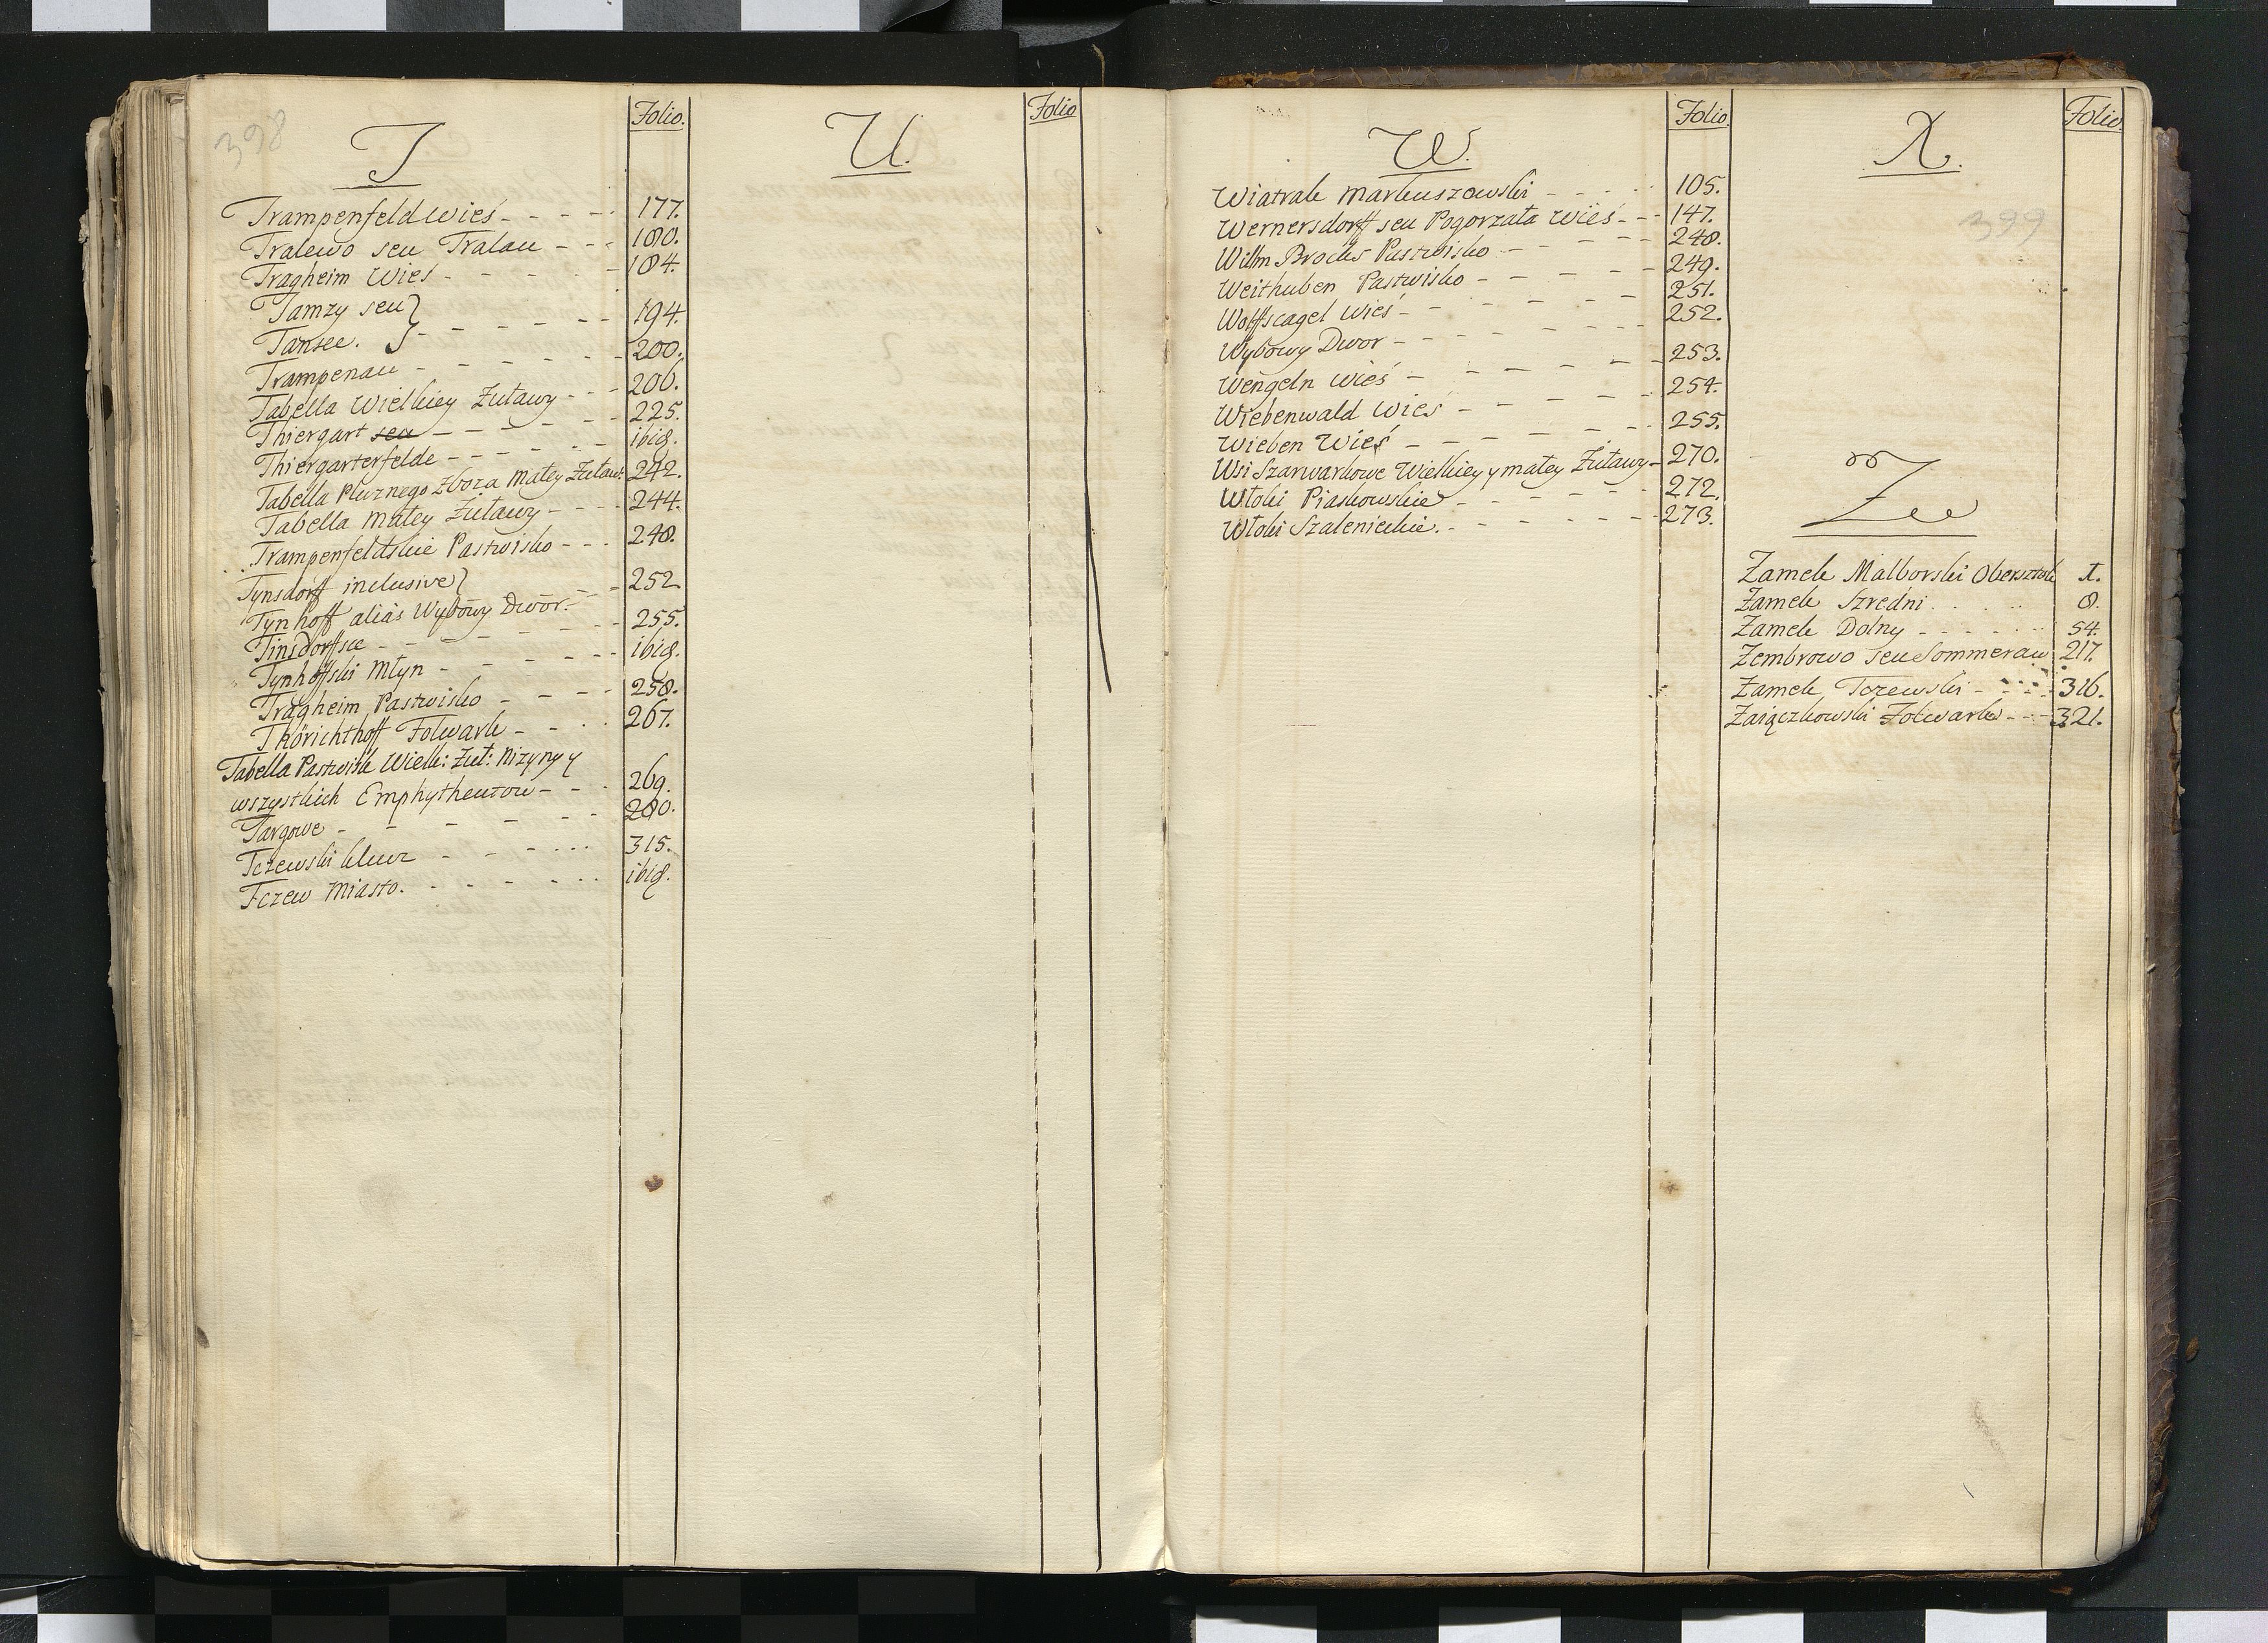 398
T
Folio.
Trampenfeld wieś - - - - 177.
Tralewo seu Tralau - - - 180.
Tragheim Wieś - - - - - 184.
Tamzy seu }
Tansee. } - - - - - - 194.
Trampenau - - - - - 200.
Tabella Wielkiey Żuławy - - - 206.
Thiergart seu - - - - - 225.
Thiergarterfelde - - - - - - ibid.
Tabella Pluznego Zboza Małey Żuław: 242.
Tabella Małey Żuławy - - - - 244.
Trampenfeldskie Pastwisko - - - 248.
Tynsdorff inclusive }
Tynhoff alias Wybowy Dwor. - - 252
Tinsdorffsce - - - - - - 255.
Tynhoffski Młyn - - - - - - ibid.
Tragheim Pastwisko - - - - 258.
Thörichthoff Folwark - - - 267.
Tabella Pastwisk Wielk: Żuł: Nizyny y
wszystkich Emphytheutow - - - 269.
Targowe - - - - - - - 280.
Tczewski klucz - - - ... 315.
Tczew Miasto. - - - - - ibid.
U.
Folio
W.
Folio.
Wiatrak Markuszowski - - - - 105.
Wernersdorff seu Pogorzała Wieś - - - 147.
Willm Brocks Pastwisko - - - - - 248.
Weithuben Pastwisko - - - - - 249.
Wolffscagel Wieś - - - - - - 251.
Wybowy Dwor - - - - - - 252.
Wengeln wieś - - - - - - 253.
Wiebenwald Wieś - - - - - 254.
Wieben Wieś - - - - - - 255.
Wsi Szarwarkowe Wielkiey y małey Żuławy - 270.
Włoki Piaskowskie - - - - - 272.
Włoki Szalenieckie. - - - - - 273.
X.
Folio
399
Z
Zamek Malborski Obersztok 1.
Zamek Szredni . . . . 8.
Zamek Dolny - - - - - 54.
Zembrowo seu Sommerau 217.
Zamek Tczewski - - - - 316.
Zaiączkowski Folwark - - - 321.